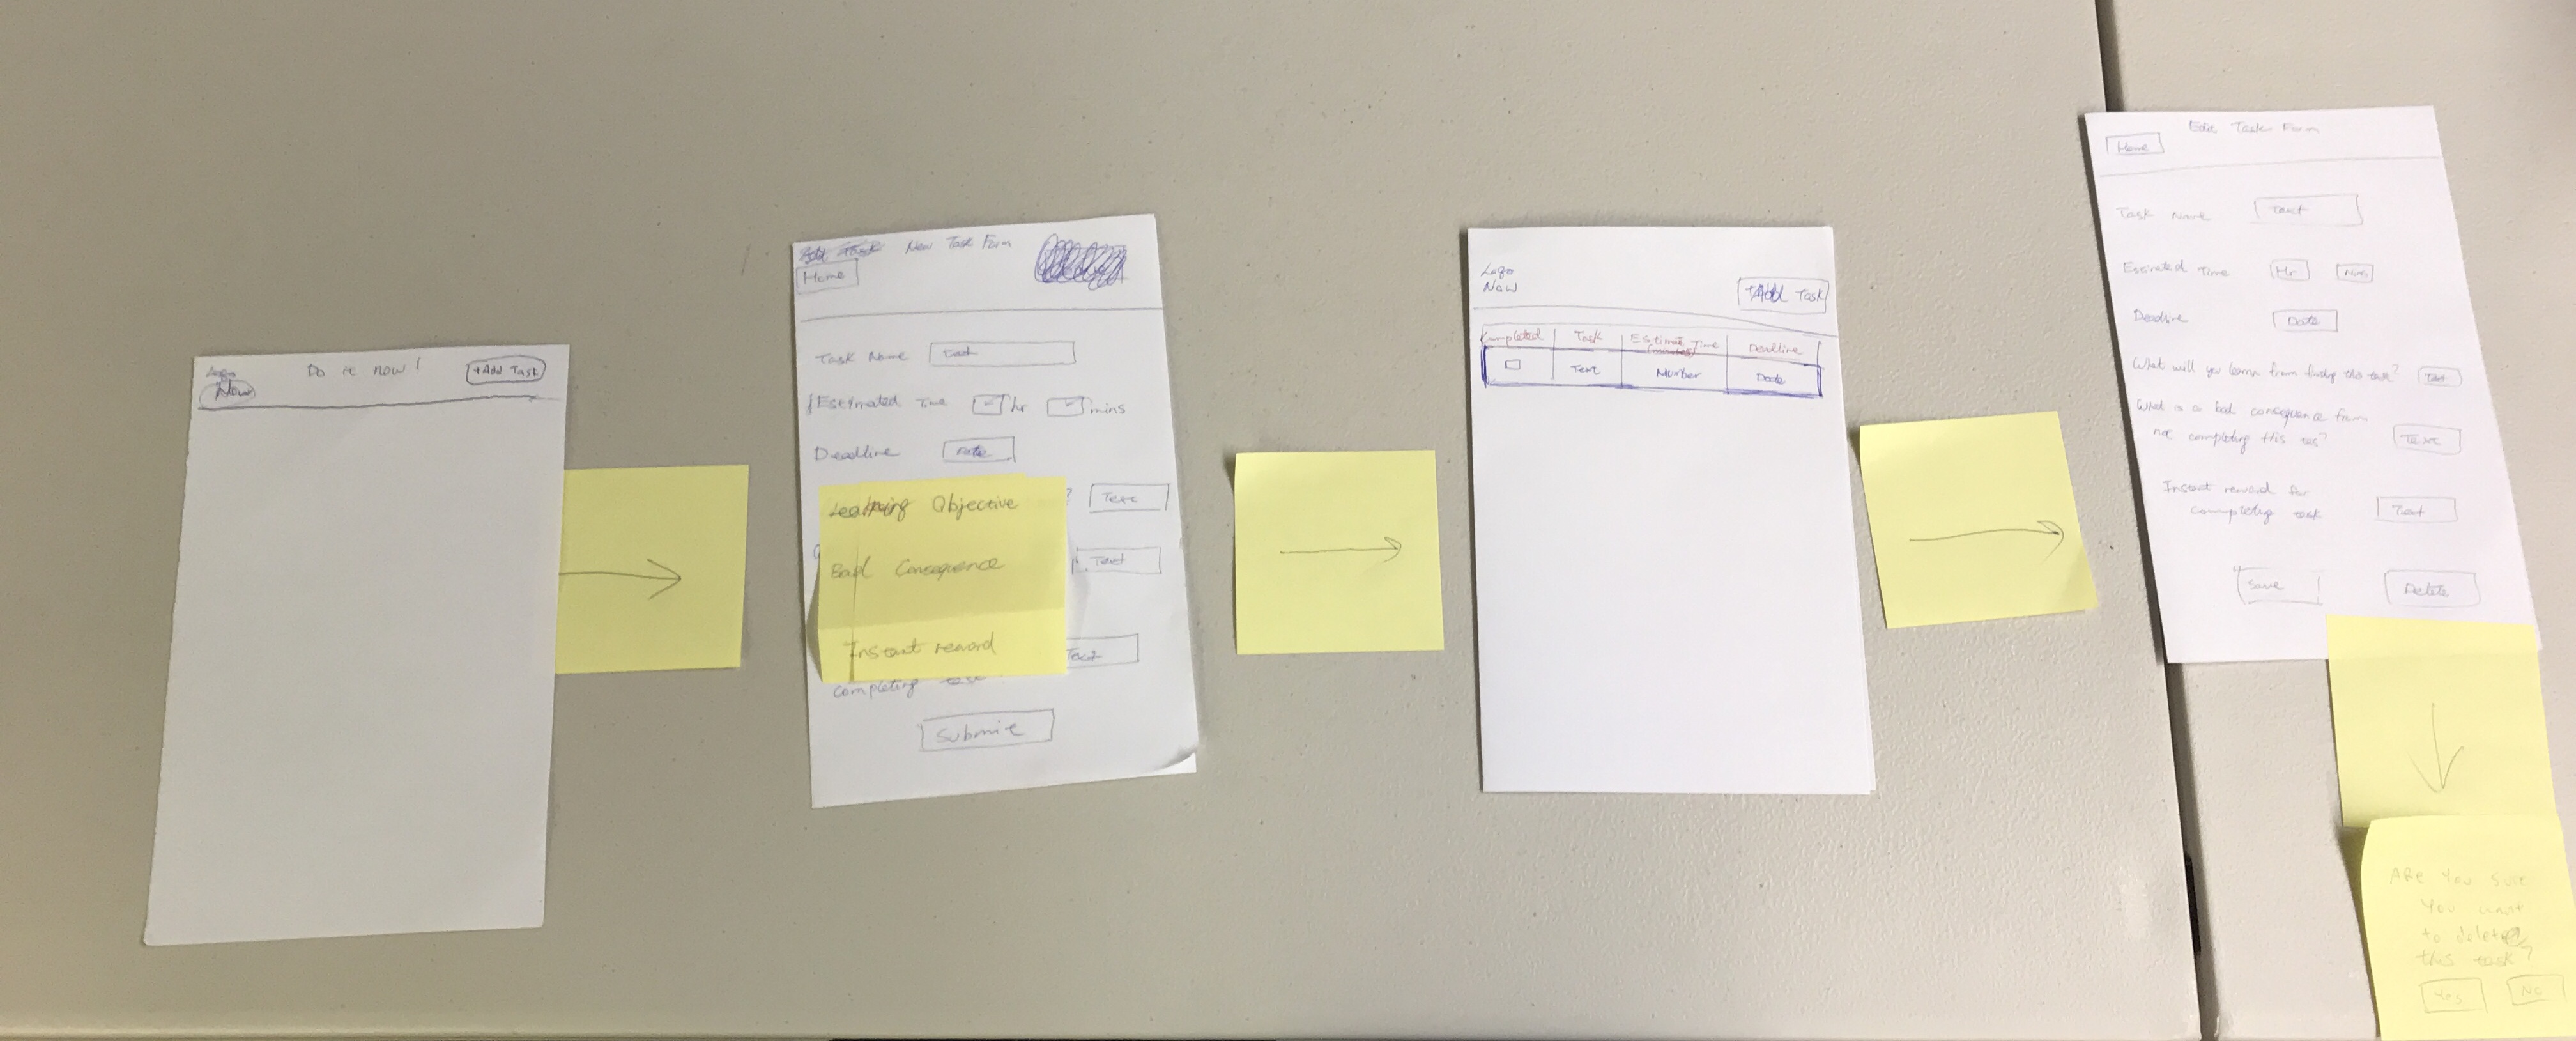 Logo
Now
Do it now!
+Add Task
New Task Form
Home
Task Name
Text
Estimated Time
hr
mins
Deadline
Date
Learning Objective
? Text
Bad Consequence
Text
Instant reward
Text
completing task
Submit
Logo
Now
+Add Task
Completed Task Estimate Time Deadline
(minutes)
Text Number Date
Edit Task Form
Home
Task Name Text
Estimated Time Hr Mins
Deadline Date
What will you learn from this task? Text
What is a bad consequence from
not completing this Text
Instant reward for
completing task Text
Save Delete
ARe You sure
You want
to delete
this task?
Yes No